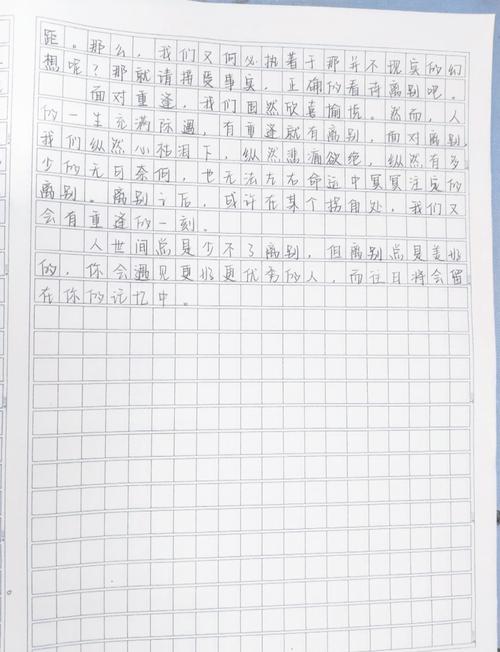 距。那么，我们又何必执着于那并不现实的幻
想呢？那就请接受事实，正确的看待离别吧。
面对重逢，我们固然欣喜愉悦。然而，人
的一生充满际遇，有重逢就有离别，面对离别，
我们纵然小独泪下，纵然悲痛欲绝，纵然有多
少的无可奈何，也无法左右命运中冥冥注定的
离别。离别之后，或许在某个拐角处，我们又
会有重逢的一刻。
人世间总是少不了离别，但离别总是美好
的，你会遇见更好更优秀的人，而往日将会留
在你的记忆中。